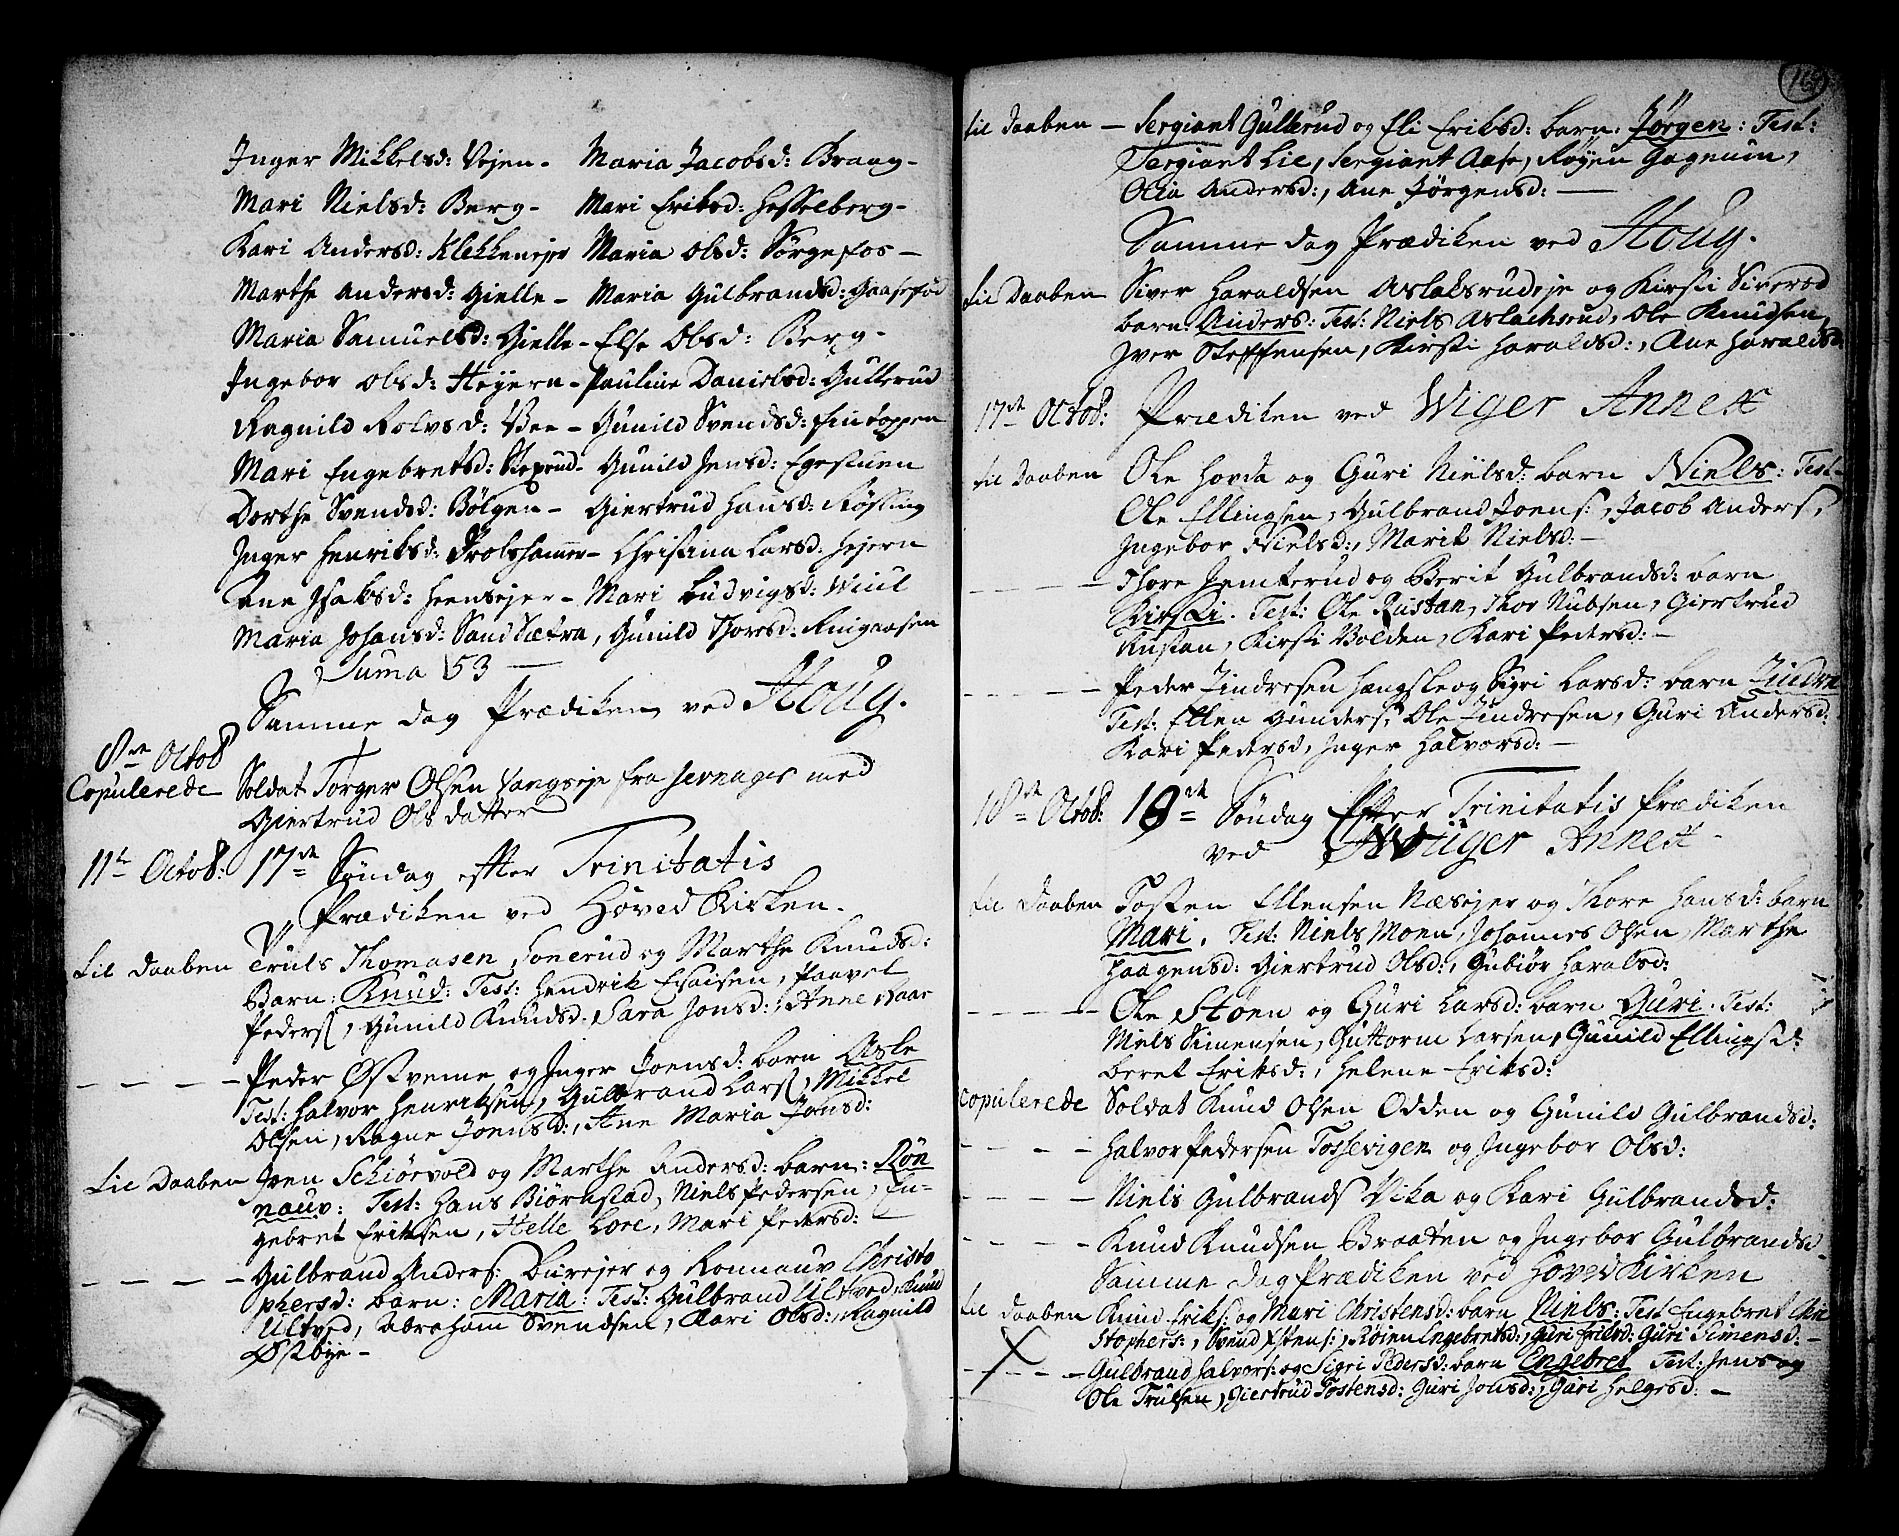 Inger Mikkelsd: Vejen - Maria Jacobsd: Braag -
Mari Nielsd: Berg - Mari Eriksd: Hesselberg -
Kari Andersd: Klekkenejer Maria Olsd: Sørgefos -
Marthe Andersd: Gielle - Maria Gulbrandsd: Gaasefod
Maria Samuelsd: Gielle - Else Olsd: Berg -
Ingebor Olsd: Heyern - Pauline Danielsd: Gullerud
Ragnild Rolvsd: Vee - Gunild Svendsd: Fintoppen
Mari Engebretsd: - Gunild Jensd: Egestuen
Dorthe Svendsd: Bølgen - Giertrud Hansd: Røssing
Inger Henriksd: Trolshammer - Christina Larsd: Hejern
Ane Isaksd: Heensejer - Mari Ludvigsd: Wiul
Maria Johansd: Sand Sætra, Gunild Thorsd: Ringaasen
Suma 53 —
Samme dag Prædiken ved Houg.
8de Octob
Copulerede Soldat Torger Olsen Vangseje fra Jevnager med
Giertrud Olsdatter
11te Octob: 17de Søndag efter Trinitatis
Prædiken ved Hoved Kirken.
til daaben Truls Thomasen Sonerud og Marthe Knudsd:
Barn: Knud: Test: Hendrik Esaisen, Paavel
Peders, Gunild Knudsd: Sara Jonsd:, Anne Haar
- - - - Peder Østvenne og Inger Joensd: barn Asle
Test: Halvor Henriksen, Gulbrand Lars, Mikkel
Olsen, Ragne Joensd:, Ane Maria Jonsd:
til Daaben Joen Schiørvold og Marthe Andersd: barn: Røn
nauv: Test: Hans Biørnstad, Niels Pedersen, En-
gebret Eriksen, Helle Lore, Mari Pedersd: -
- - - - Gulbrand Anders: Burejer og Ronnauv Christo
phersd: barn: Maria: Test: Gulbrand Ultved, Knud
Ultved, Abraham Svendsen, Kari Olsd:, Ragnild
Østbye -
til daaben - Sergiant Gullerud og Eli Eriksd: barn: Jørgen: Test:
Sergiant Lie, Sergiant Aase, Røyen Gagnum,
Olia Andersd:, Ane Jørgensd: —
Samme dag Prædiken ved Houg.
til Daaben Siver Haraldsen Aslaksrudeje og Kirsti Siversd
barn: Anders: Test: Niels Aslachsrud, Ole Knudsen,
Iver Steffensen, Kirsti Haraldsd:, Ane Haraldsd:
17de Octob: Prædiken ved Wiger Annex
til Daaben Ole Hovda og Guri Nielsd: barn Niels: Test
Ole Ellingsen, Gulbrand Joens:, Jacob Anders,
Ingebor Nielsd:, Marit Nielsd: -
- - - - Thore Jemterud og Berit Gulbrandsd: barn
Kirsti. Test: Ole Rustan, Thor Nubsen, Giertrud
Rustan, Kirsti Bolden, Kari Pedersd: -
- - - - Peder Zindresen Hangsle og Sigri Larsd: barn Zindre
Test: Ellen Gunders, Ole Zindresen, Guri Andersd:
Kari Pedersd, Inger Halvorsd: -
18de Octob: 18de Søndag Efter Trinitatis Prædiken
ved Wiger Annex -
til daaben Tosten Ellensen Næsejer og Thore Hansd: barn
Mari. Test: Niels Moen, Johannes Olsen, Marthe
Haagensd: Giertrud Olsd:, Gubiør Haralsd:
- - - - Ole Støen og Guri Larsd: barn Guri. Test:
Niels Simensen, Guttorm Larsen, Gunild Ellingsd:
beret Eriksd:, Helene Eriksd:
copulerede Soldat Knud Olsen Odden og Gunild Gulbrandsd:
- - - - Halvor Pedersen Tossevigen og Ingebor Olsd:
- - - - Niels Gulbrands Vika og Kari Gulbrandsd:
- - - - Knud Knudsen Braaten og Ingebor Gulbrandsd
Samme dag Prædiken ved Hoved Kirken
til daaben Knud Eriks: og Mari Christensd: barn Niels: Test Engebret Chri
stophers:, Svend Estens:, Røien Engebretsd:, Guri Eriksd: Guri Simensd: -
- - - - Gulbrand Halvors: og Sigri Pedersd: barn Engebret Test: Jens og
Ole Trulsen, Giertrud Tostensd: Guri Jonsd:, Guri Helgesd: -